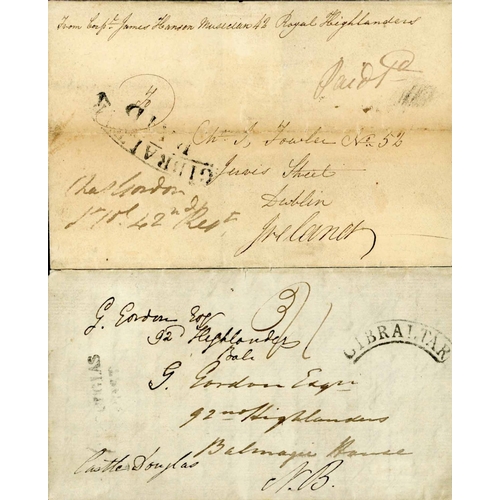 From Corpl. James Hanson Musician 42 Royal Highlanders
Paid 1d
GIBRALTAR
PAID
Chs. J. Fowler No. 52
Jervis Street
Dublin
Ireland
Chas Gordon
Lt Col. 42nd Regt
G. Gordon Esq
92d Highlanders
GIBRALTAR
G. Gordon Esqr
92nd Highlanders
Balmagie House
Castle Douglas
N.B.